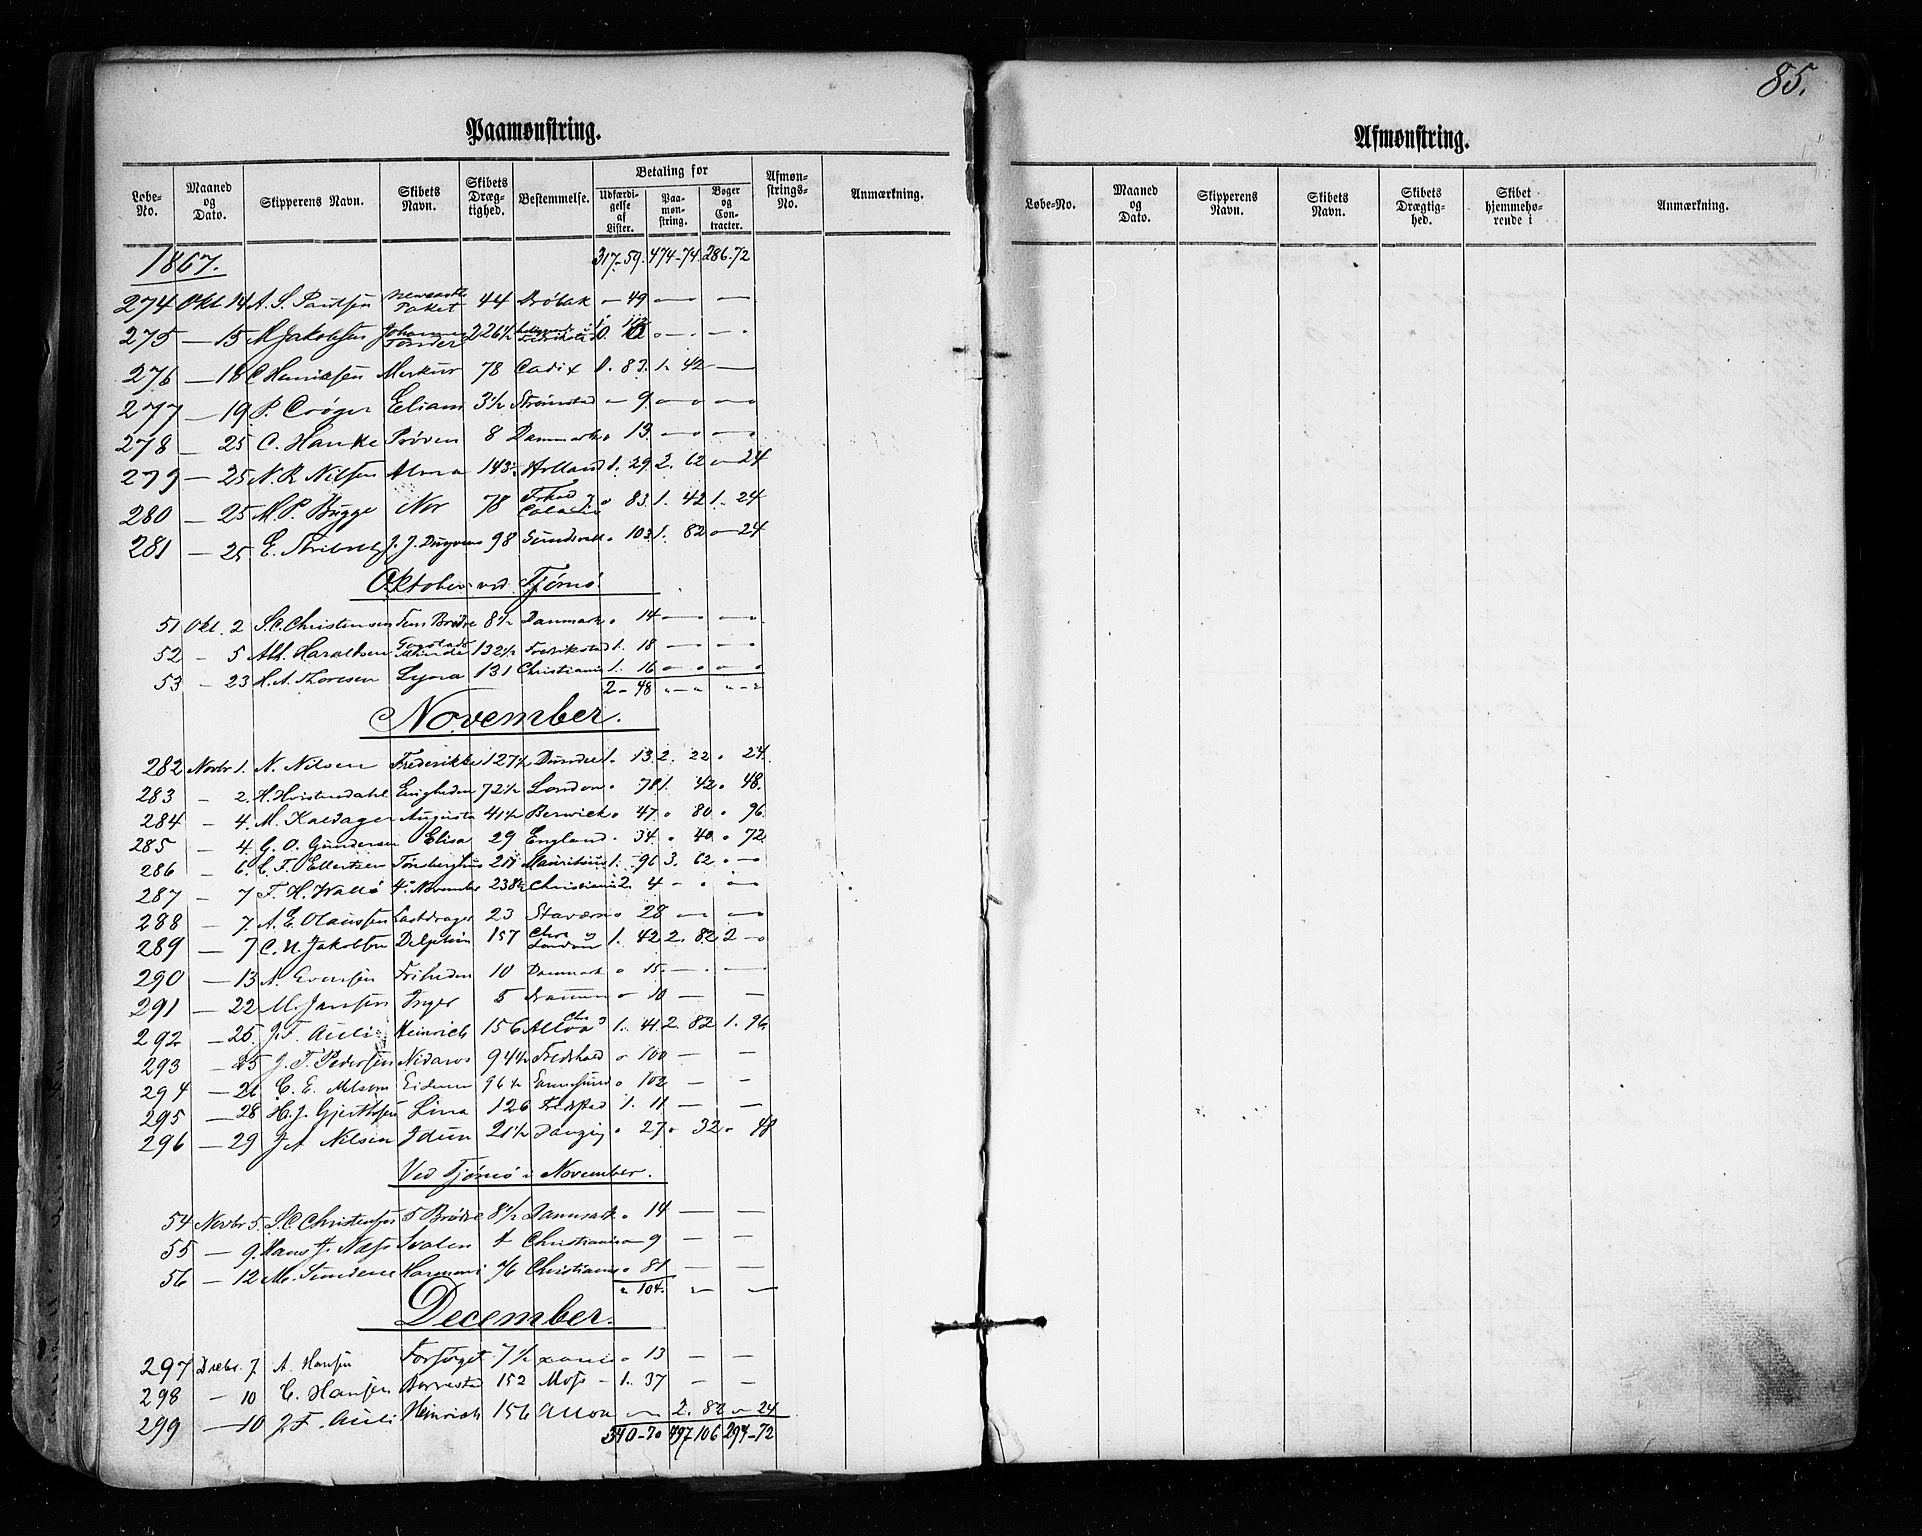 85.
Paamønstring.
Løbe-No. Maaned og Dato. Skipperens Navn. Skibets Navn. Skibets Drægtighed. Bestemmelse. Betaling for Udfærdigelse af Lister. Paamønstring. Bøger og Contracter. Afmønstrings-No. Anmærkning.
1867. 317-59. 474-74. 286-72
274 Okt. 14 A. S. Paulsen Paket 44 Drøbak — 49 — —
275 — 15 Jakobsen Johannes 226½
276 — 18 C Henriksen Merkur 78 Cadix 0. 83. 1. 42 —
277 — 19 P. Crøger Eliam 3½ Strømstad — 9. — —
278 — 25 C. Hanke Prøven 8 Danmark 13. — —
279 — 25 N. R. Nilsen Alma 143½ Holland 1. 29. 2. 62 — 24
280 — 25 M. P. Bugge Nor 78 83. 1. 42 1. 24
281 — 25 E. 98 Sundsvall 103 1. 82 — 24
Oktober ved Tjømø.
51 Okt. 2 S. C. Christensen Fem Brødre 8½ Danmark 14 — —
52 — 5 Abr. Haraldsen 132½ Fredrikstad 1. 18 — —
53 — 23 H. A. Thoresen Lyna 131 Christiania 1. 16
2 - 48
November.
282 Novbr 1. N. Nilsen Frederikke 127½ Dundee 1. 13 2. 22 24
283 — 2. H. Hvistendahl Enigheden 72½ London 78 1. 42 48.
284 — 4. M. Kaldager Augusta 41½ Berwick 47 80 96
285 — 4. G. O. Gundersen Elisa 29 England 34. 40 72
286 — 6. C. F. Ellertsen Tønsberghus Mauritius 1. 96 3. 62 —
287 — 7 F. H. Wallø 4de November 238½ Christiania 2. 4 — —
288 — 7. A. E. Olaussen Lastdrager 23 Stavern 28 — —
289 — 7 C. N. Jakobsen Delphin 157 Chra og London 1. 42 2. 82 2 —
290 — 13 N. Evensen Friheden 10 Danmark 15. — —
291 — 22 M. Jansen Inger 5 10 — —
292 — 25. J. F. Auli Heinrich 156 Chra og Alloa 1. 41 2. 82 1. 96
293 — 25 J. T. Pedersen Nidaros 94½ Fredshald 100 — —
294 — C. E. Melsom 96½ 102 — —
295 — 28 H. J. Gjerthsen Lina 126 Fredstad 1. 11 — —
296 — 29 J A Nilsen Idun 21½ Danzig 27 32 48
Ved Tjømø i November.
54 Novbr 5. S. C Christensen 5 Brødre 8½ Danmark 14 — —
55 — 9. Hans J. Næss Svalen 4 Christiania 9 — —
56 — 12 M. Harmoni Christiania 81 — —
104.
December.
297 Decbr. 7 A. Hansen Forsøget 7½ 13 — —
298 — 10 C. Hansen Borrestad 152 Moss 1. 37 — —
299 — 10 J. F. Auli Heinrich 156 Alloa — 2. 82 24
340-70 497 106 294-72
Afmønstring.
Løbe-No. Maaned og Dato. Skipperens Navn. Skibets Navn. Skibets Drægtighed. Skibet hjemmehørende i Anmærkning.